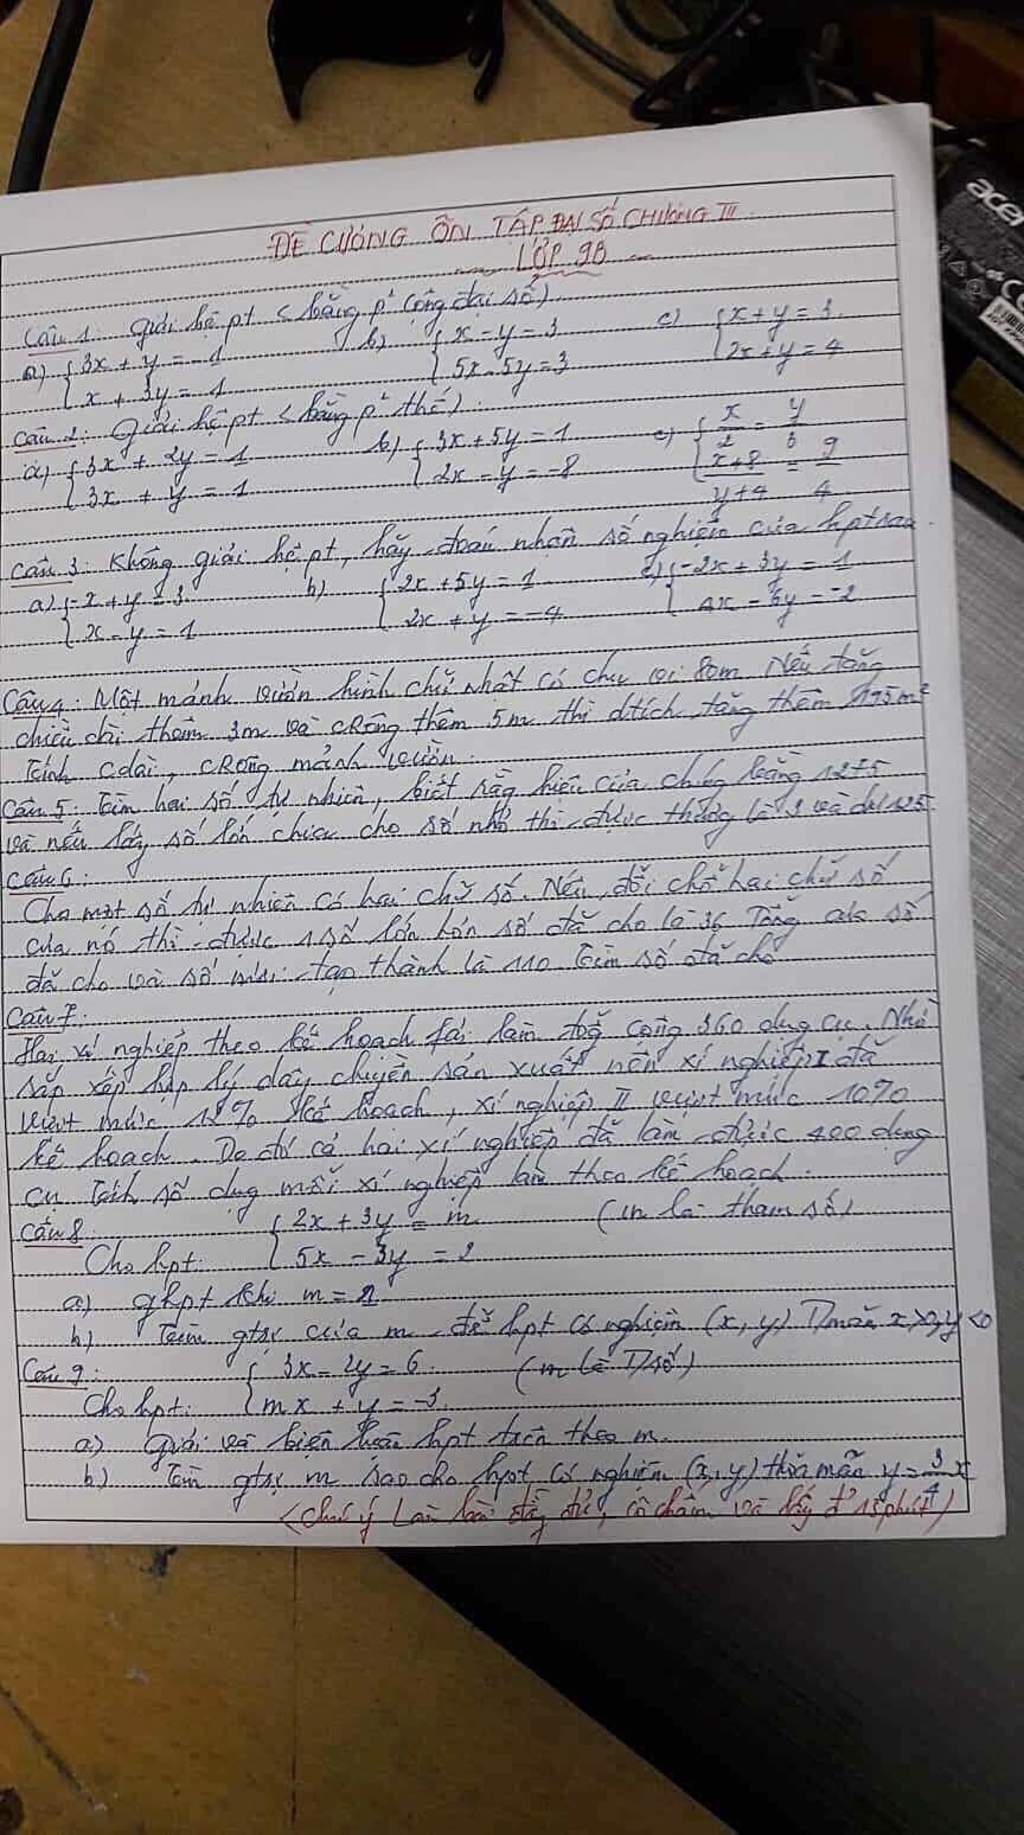 ĐỀ CƯƠNG ÔN TẬP ĐẠI SỐ CHƯƠNG III
LỚP 9B
Câu 1: giải hệ pt < bằng p² cộng đại số)
a) { 3x + y = -1
{ x + 3y = -1
b) { x - y = 3
{ 5x - 5y = 3
c) { x + y = 3
{ 2x + y = 4
Câu 2: Giải hệ pt < bằng p² thế)
a) { 3x + 2y = 1
{ 3x + y = 1
b) { 3x + 5y = 1
{ 2x - y = -8
c) { x/2 = y/3
{ x+8/y+4 = 9/4
Câu 3: Không giải hệ pt, hãy đoán nhận số nghiệm của hpt sau
a) { -x + y = 3
{ x - y = 1
b) { 2x + 5y = 1
{ 2x + y = -4
c) { -2x + 3y = 1
{ 4x - 6y = -2
Câu 4: Một mảnh vườn hình chữ nhật có chu vi 80m. Nếu tăng
chiều dài thêm 3m và cRộng thêm 5m thì dtích tăng thêm 195m²
Tính cdài, cRộng mảnh vườn.
Câu 5: Tìm hai số tự nhiên, biết rằng hiệu của chúng bằng 1275
và nếu lấy số lớn chia cho số nhỏ thì được thương là 3 và dư 125
Câu 6:
Cho một số tự nhiên có hai chữ số. Nếu đổi chỗ hai chữ số
của nó thì được 1 số lớn hơn số đã cho là 36. Tổng của số
đã cho và số mới tạo thành là 110. Tìm số đã cho
Câu 7:
Hai xí nghiệp theo kế hoạch fải làm tổng cộng 360 dụng cụ. Nhờ
sắp xếp hợp lý dây chuyền sản xuất nên xí nghiệp I đã
vượt mức 12% kế hoạch, xí nghiệp II vượt mức 10%
kế hoạch. Do đó cả hai xí nghiệp đã làm được 400 dụng
cụ. Tính số dụng mỗi xí nghiệp làm theo kế hoạch.
Câu 8:
Cho hpt: { 2x + 3y = m (m là tham số)
{ 5x - 3y = 2
a) ghpt khi m =
b) Tìm gtrị của m để hpt có nghiệm (x, y) Tmãn x>0, y<0
Câu 9:
Cho hpt: { 3x - 2y = 6 (m là Tsố)
{ mx + y = -3
a) Giải và biện luận hpt trên theo m.
b) Tìm gtrị m sao cho hpt có nghiệm (x, y) thỏa mãn y = 3/4 x
< chú ý Làm bài đầy đủ, cô chấm và lấy đ' 15 phút)